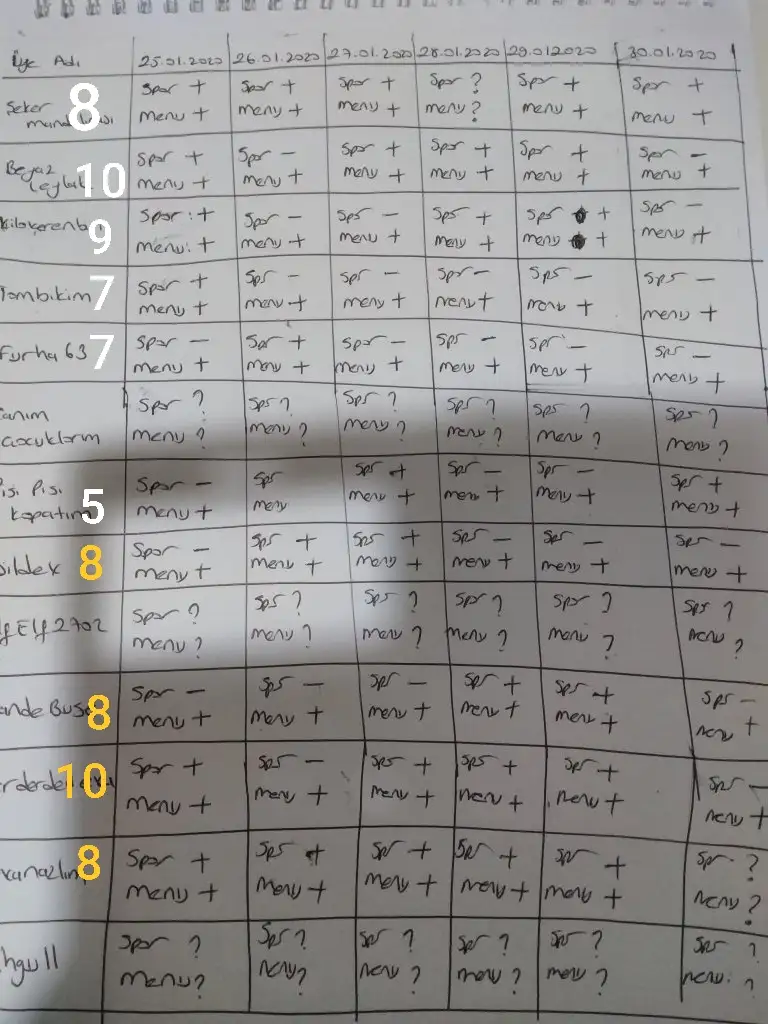 Üye Adı 25.01.2020 26.01.2020 27.01.2020 28.01.2020 29.012020 30.01.2020
Şeker 8 Spor + Spor + Spor + Spor ? Spor + Spor +
menu + menu + menu + menu ? menu + menu +
Beyaz 10 Spor + Spor - Spor + Spor + Spor + Spor -
menu + menu + menu + menu + menu + menu +
9 Spor : + Spor - Spor - Spor + Spor + Spor -
menu : + menu + menu + menu + menu + menu +
Tombikim 7 Spor + Spor - Spor - Spor - Spor - Spor -
menu + menu + menu + menu + menu + menu +
Furha 63 7 Spor - Spor + Spor - Spor - Spor - Spor -
menu + menu + menu + menu + menu + menu +
anım Spor ? Spor ? Spor ? Spor ? Spor ? Spor ?
cocuklarım menu ? menu ? menu ? menu ? menu ? menu ?
isi Pisi 5 Spor - Spor Spor + Spor - Spor - Spor +
kopatım menu + menu menu + menu + menu + menu +
8 Spor - Spor + Spor + Spor - Spor - Spor -
menu + menu + menu + menu + menu + menu +
Elf2702 Spor ? Spor ? Spor ? Spor ? Spor ? Spor ?
menu ? menu ? menu ? menu ? menu ? menu ?
ande Buse 8 Spor - Spor - Spor - Spor + Spor + Spor -
menu + menu + menu + menu + menu + menu +
10 Spor + Spor - Spor + Spor + Spor + Spor -
menu + menu + menu + menu + menu + menu +
8 Spor + Spor + Spor + Spor + Spor + Spor ?
menu + menu + menu + menu + menu + menu ?
hgull Spor ? Spor ? Spor ? Spor ? Spor ? Spor ?
menu ? menu ? menu ? menu ? menu ? menu : ?